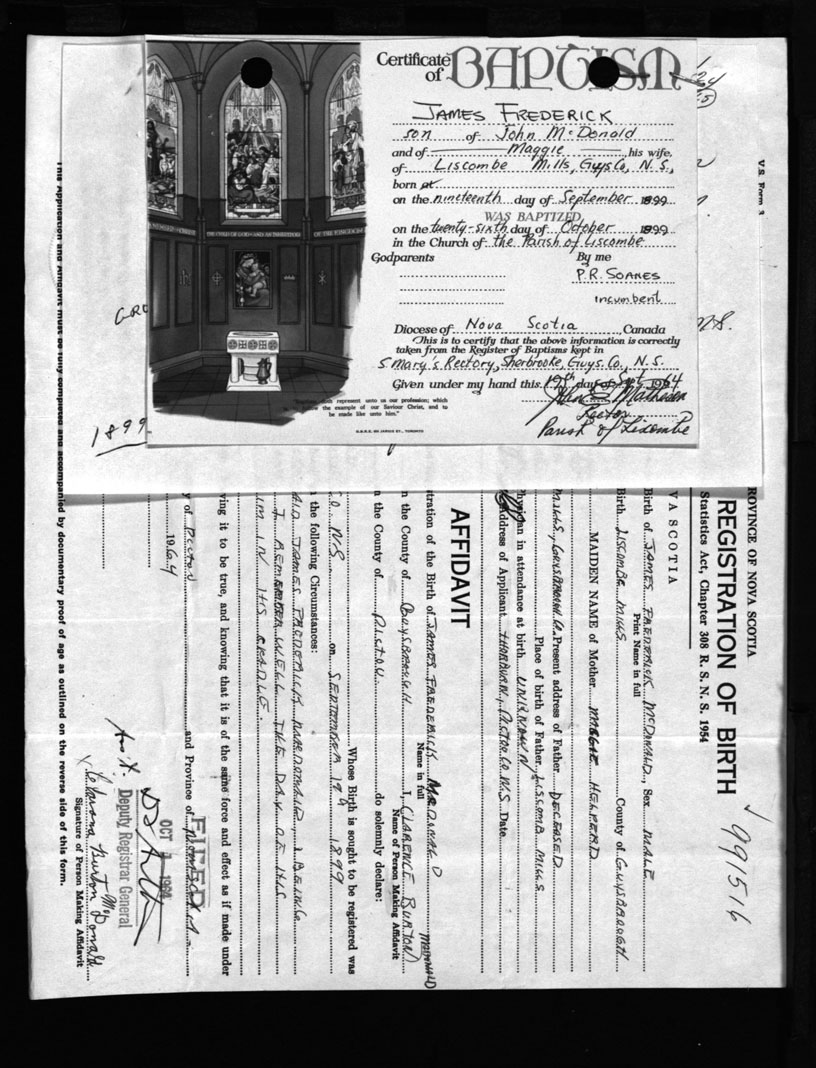 Certificate of BAPTISM
JAMES FREDERICK
son of John McDonald
and of Maggie, his wife,
of Liscombe Mills, Guys Co, N.S.,
born at
on the nineteenth day of September 1899
WAS BAPTIZED,
on the twenty-sixth day of October 1899
in the Church of the Parish of Liscombe
Godparents By me
P.R. SOANES
incumbent
Diocese of Nova Scotia, Canada
This is to certify that the above information is correctly
taken from the Register of Baptisms kept in
S. Mary's Rectory, Sherbrooke, Guys. Co., N.S.
Given under my hand this 19th day of Sept 1964
Matheson
Rector
Parish of Liscombe
THE CHILD OF GOD AND AN INHERITOR OF THE KINGDOM
represent unto us our profession; which
the example of our Saviour Christ, and to
be made like unto him."
1899
V.S. Form 3
ROVINCE OF NOVA SCOTIA
REGISTRATION OF BIRTH
Statistics Act, Chapter 308 R. S. N. S. 1954
991516
VA SCOTIA
Birth of JAMES FREDERICK McDONALD, Sex MALE
Print Name in full
Birth LISCOMBE MILLS County of GUYSBOROUGH
MAIDEN NAME of Mother MAGGIE
MILLS, GUYSBOROUGH CO. Present address of Father DECEASED
Place of birth of Father LISCOMB MILLS
hysician in attendance at birth UNKNOWN
Address of Applicant THORBURN, PICTOU CO. N.S Date
AFFIDAVIT
stration of the Birth of JAMES FREDERICK McDONALD
Name in full
n the County of GUYSBOROUGH I, CLARENCE BURTON McDONALD
Name of Person Making Affidavit
n the County of PICTOU do solemnly declare:
Whose Birth is sought to be registered was
N.S on SEPTEMBER 19th 1899
n the following Circumstances:
AID JAMES FREDERICK MACDONALD, I BEING
I REMEMBER WELL THE DAY OF HIS
IM IN HIS CRADLE.
ving it to be true, and knowing that it is of the same force and effect as if made under
y of Pictou and Province of
1964
FILED
OCT
Deputy Registrar General
Clarence Burton McDonald
Signature of Person Making Affidavit
This Application and Affidavit must be fully completed and accompanied by documentary proof of age as outlined on the reverse side of this form.